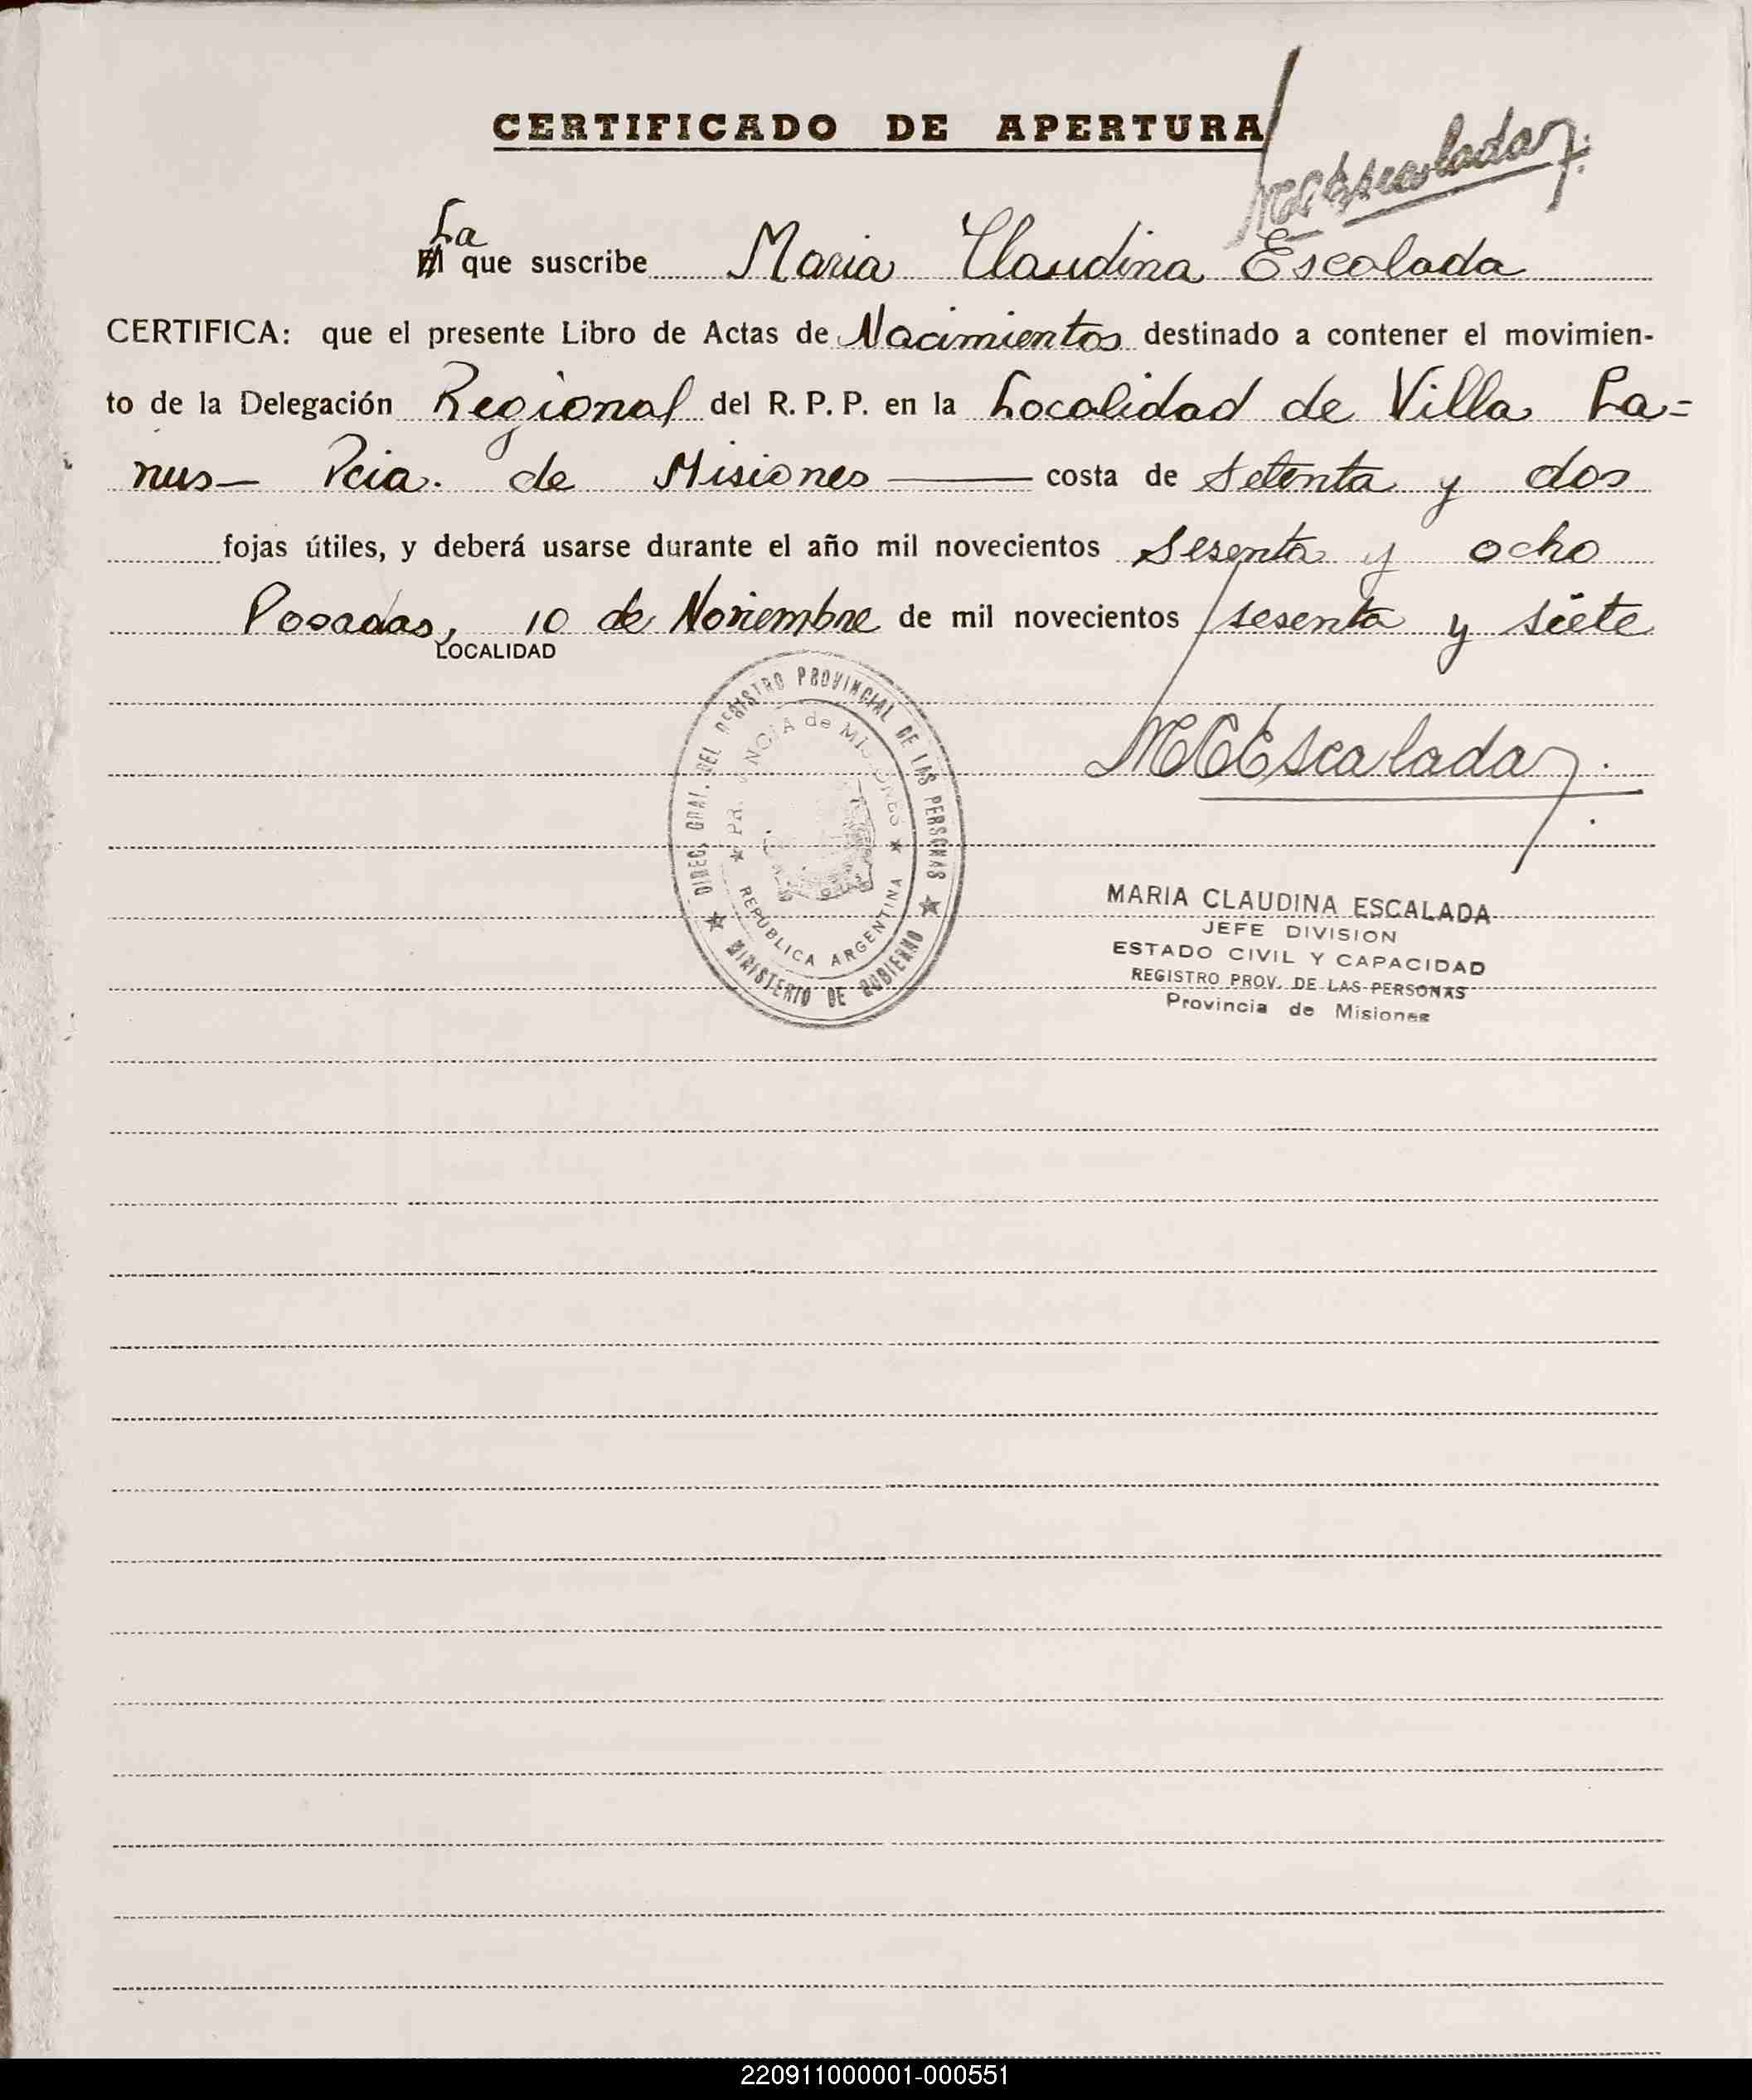 CERTIFICADO DE APERTURA
MCEscalada
La
que suscribe Maria Claudina Escalada
CERTIFICA: que el presente Libro de Actas de Nacimientos destinado a contener el movimien-
to de la Delegación Regional del R. P. P. en la Localidad de Villa La=
nus— Pcia. de Misiones — costa de setenta y dos
fojas útiles, y deberá usarse durante el año mil novecientos sesenta y ocho
Posadas, 10 de Noviembre de mil novecientos sesenta y siete
LOCALIDAD
DIREC. GRAL. DEL REGISTRO PROVINCIAL DE LAS PERSONAS
PROVINCIA de MISIONES
REPUBLICA ARGENTINA
MINISTERIO DE GOBIERNO
MCEscalada
MARIA CLAUDINA ESCALADA
JEFE DIVISION
ESTADO CIVIL Y CAPACIDAD
REGISTRO PROV. DE LAS PERSONAS
Provincia de Misiones
220911000001-000551